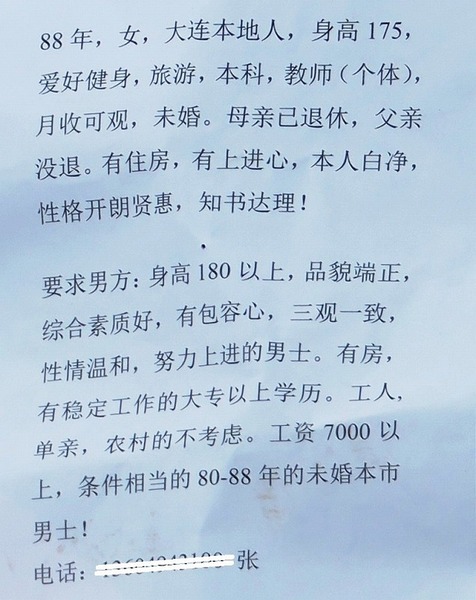 88 年，女，大连本地人，身高 175，
爱好健身，旅游，本科，教师（个体），
月收可观，未婚。母亲已退休，父亲
没退。有住房，有上进心，本人白净，
性格开朗贤惠，知书达理！
要求男方：身高 180 以上，品貌端正，
综合素质好，有包容心，三观一致，
性情温和，努力上进的男士。有房，
有稳定工作的大专以上学历。工人,
单亲，农村的不考虑。工资 7000 以
上，条件相当的 80-88 年的未婚本市
男士！
电话： 张